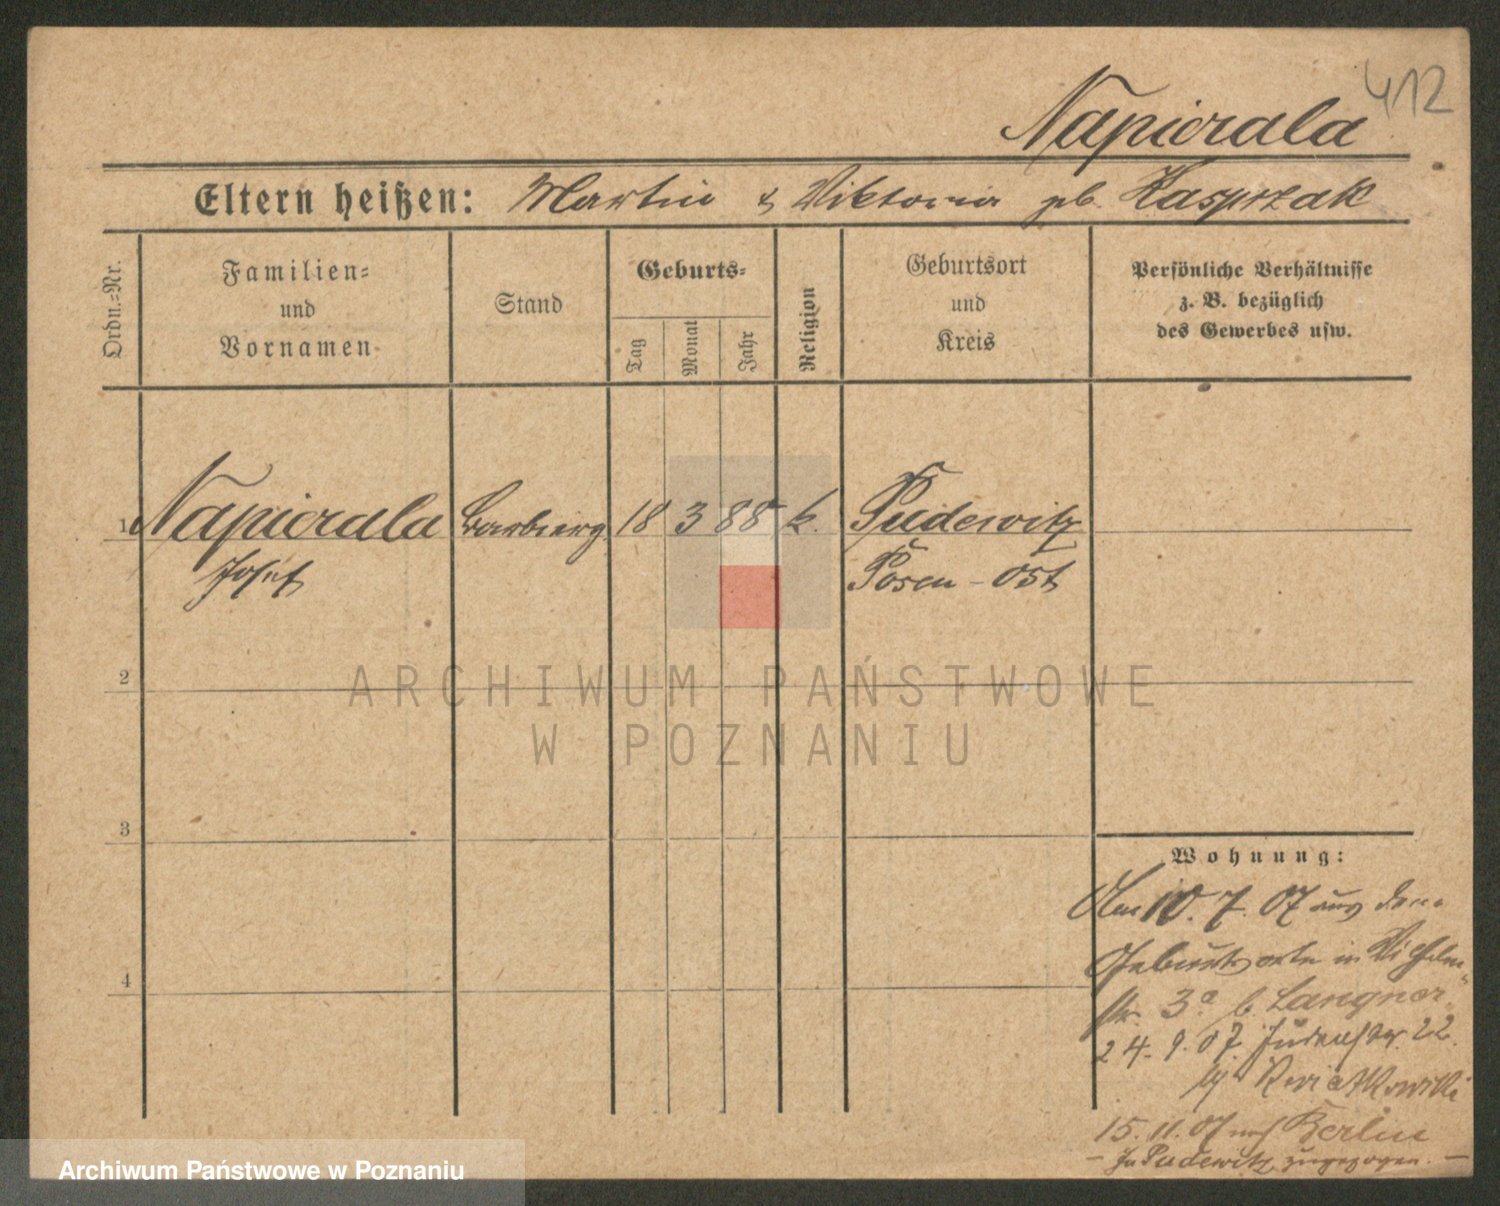 412
Napierala
Eltern heißen: Martin & Viktoria geb. Kasprzak
Ordn.-Nr.
Familien-
und
Vornamen
Stand
Geburts-
Tag
Monat
Jahr
Religion
Geburtsort
und
Kreis
Persönliche Verhältnisse
z. B. bezüglich
des Gewerbes usw.
1 Napierala Barbierg. 18 3 88 k. Pudewitz
Josef Posen-Ost
2
3
4
Wohnung:
Am 10. 7. 07 aus dem
Geburtsorte in Wilhelm-
str. 3a b. Langner
24. 9. 07 Judenstr. 22
bei Kwiatkowski
15. 11. 07 nach Berlin
- In Pudewitz zugezogen. -
ARCHIWUM PAŃSTWOWE
W POZNANIU
Archiwum Państwowe w Poznaniu